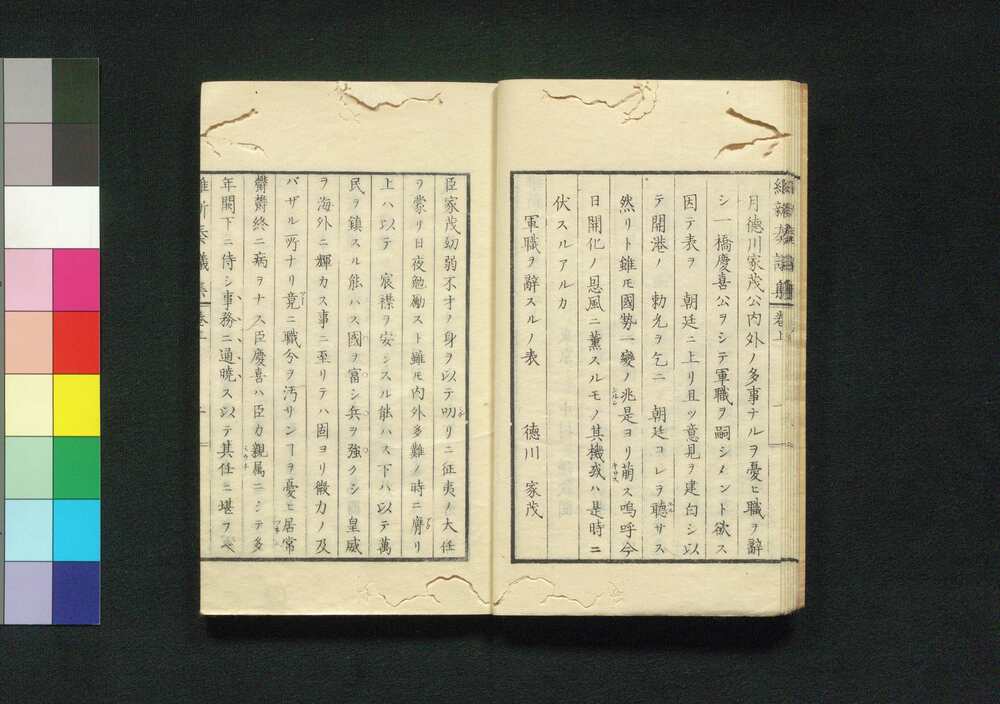 月德川家茂公内外ノ多事ナルヲ憂ヒ職ヲ辭
シ一橋慶喜公ヲシテ軍職ヲ嗣シメント欲ス
因テ表ヲ 朝廷ニ上リ且ツ意見ヲ建白シ以
テ開港ノ 勅允ヲ乞ニ 朝廷コレヲ聽サス
然リト雖モ國勢一變ノ兆是ヨリ萠ス嗚呼今
日開化ノ恩風ニ薫スルモノ其機或ハ是時ニ
伏スルアルカ
軍職ヲ辭スルノ表 德川 家茂
臣家茂幼弱不才ノ身ヲ以テ叨リニ征夷ノ大任
ヲ蒙リ日夜勉勵スト雖モ内外多難ノ時ニ膺リ
上ハ以テ 宸襟ヲ安シスル能ハス下ハ以テ萬
民ヲ鎮スル能ハス國ヲ富シ兵ヲ強クシ 皇威
ヲ海外ニ輝カス事ニ至リテハ固ヨリ微力ノ及
バザル所ナリ竟ニ職分ヲ汚サンヿヲ憂ヒ居常
欝欝終ニ病ヲナス臣慶喜ハ臣カ親属ニシテ多
年闕下ニ侍シ事務ニ通曉ス以テ其任ニ堪ヲベ
維新奏議集